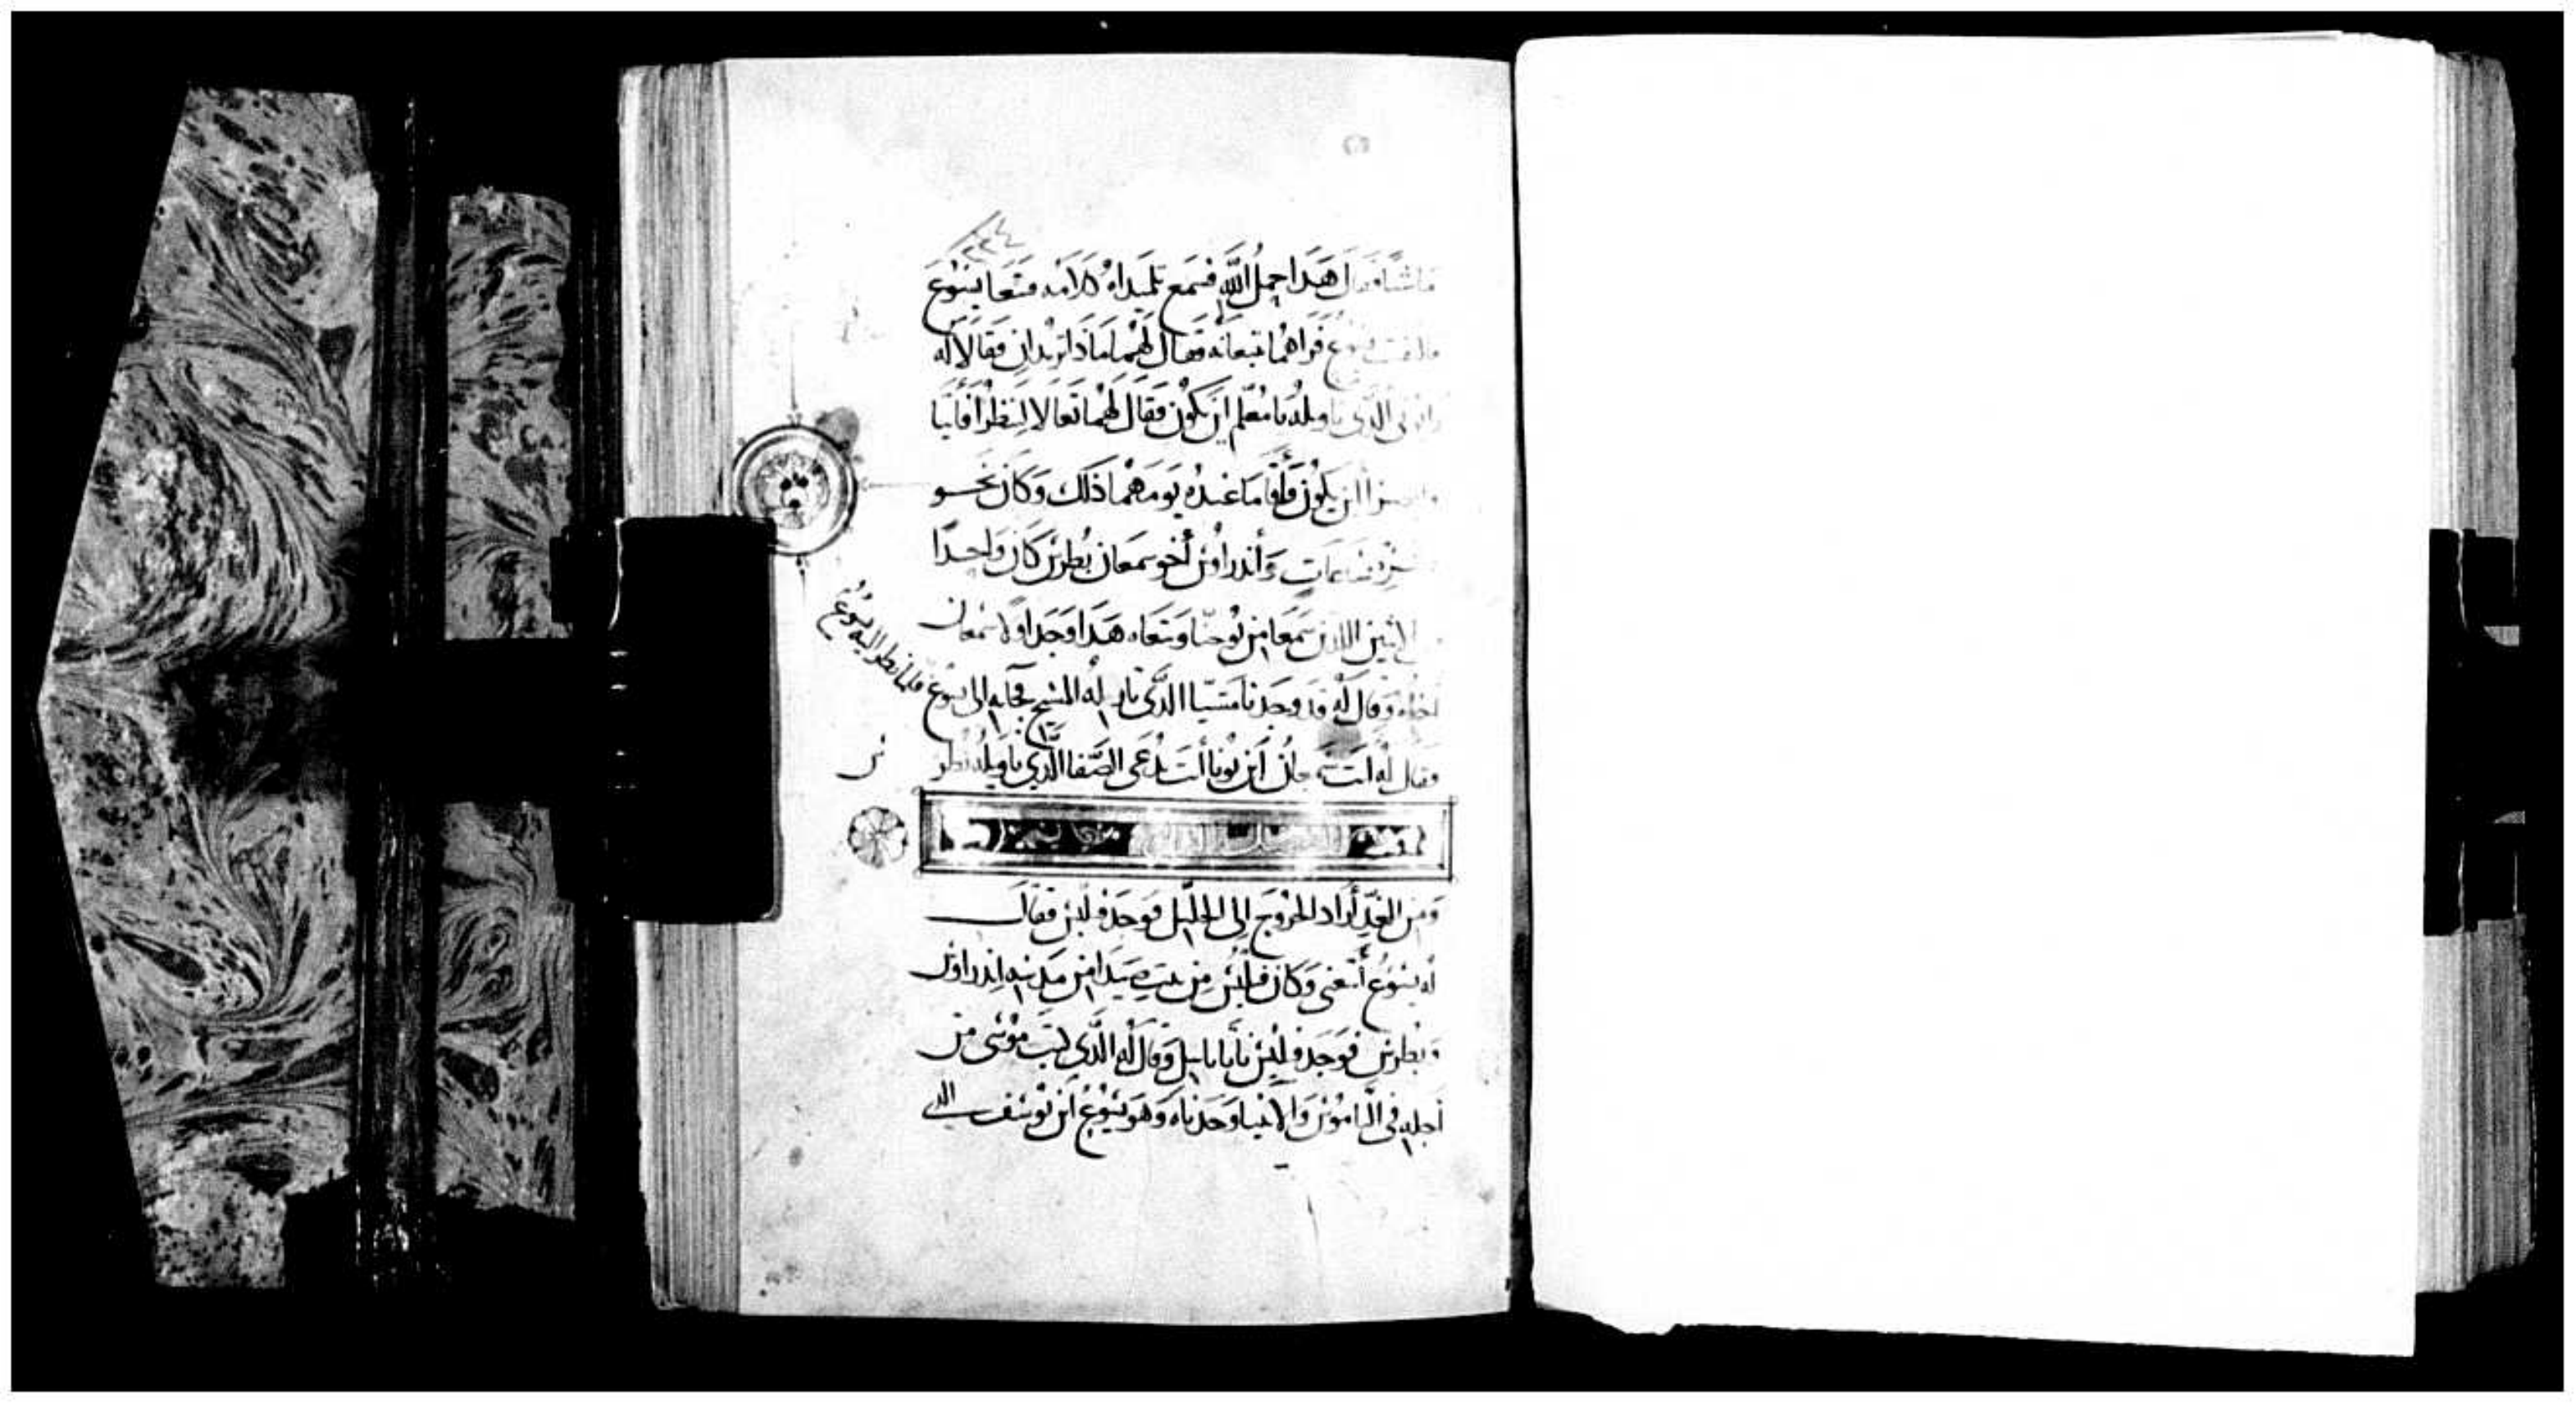 ٢٢٤
ماشيًا فقال هَذا حمل الله فسمع تلميذاه كلامه فتبعا يسوع
فالتفت يسوع فراهما يتبعانه فقال لهما ماذا تريدان فقالا له
رابي الذي تاويله يا معلم اين تكون فقال لهما تعالا لتنظرا فأتيا
وابصرا اين يكون وأقاما عنده يومهما ذلك وكان نحو
عشر ساعات وأندراوس أخو سمعان بطرس كان واحدا
من الاثنين اللذين سمعا من يوحنا وتبعاه هذا وجد اولا سمعان
اخاه وقال له قد وجدنا مسيّا الذي تاويله المسيح فجا به الى يسوع
فلما نظر اليه يسوع
وقال له انت سمعان ابن يونا انت تدعى الصّفا الذي تاويله بطرس
ومن الغد أراد الخروج إلى الجليل فوجد فيلبس فقال
له يسوع أتبعني وكان فيلبس من بيت صيدا من مدينه اندراوس
وبطرس فوجد فيلبس ناثانائيل وقال له الذي كتب موسى من
أجله في الناموس والانبيا وجدناه وهو يسوع ابن يوسف الذي